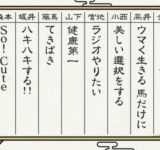 高井 ウマく生きる 馬だけに
小西 美しい選択をする
宮地 ラジオやりたい
山下 健康第一
藤馬 てきぱき
坂井 ハキハキする!!
森本 So! Cute